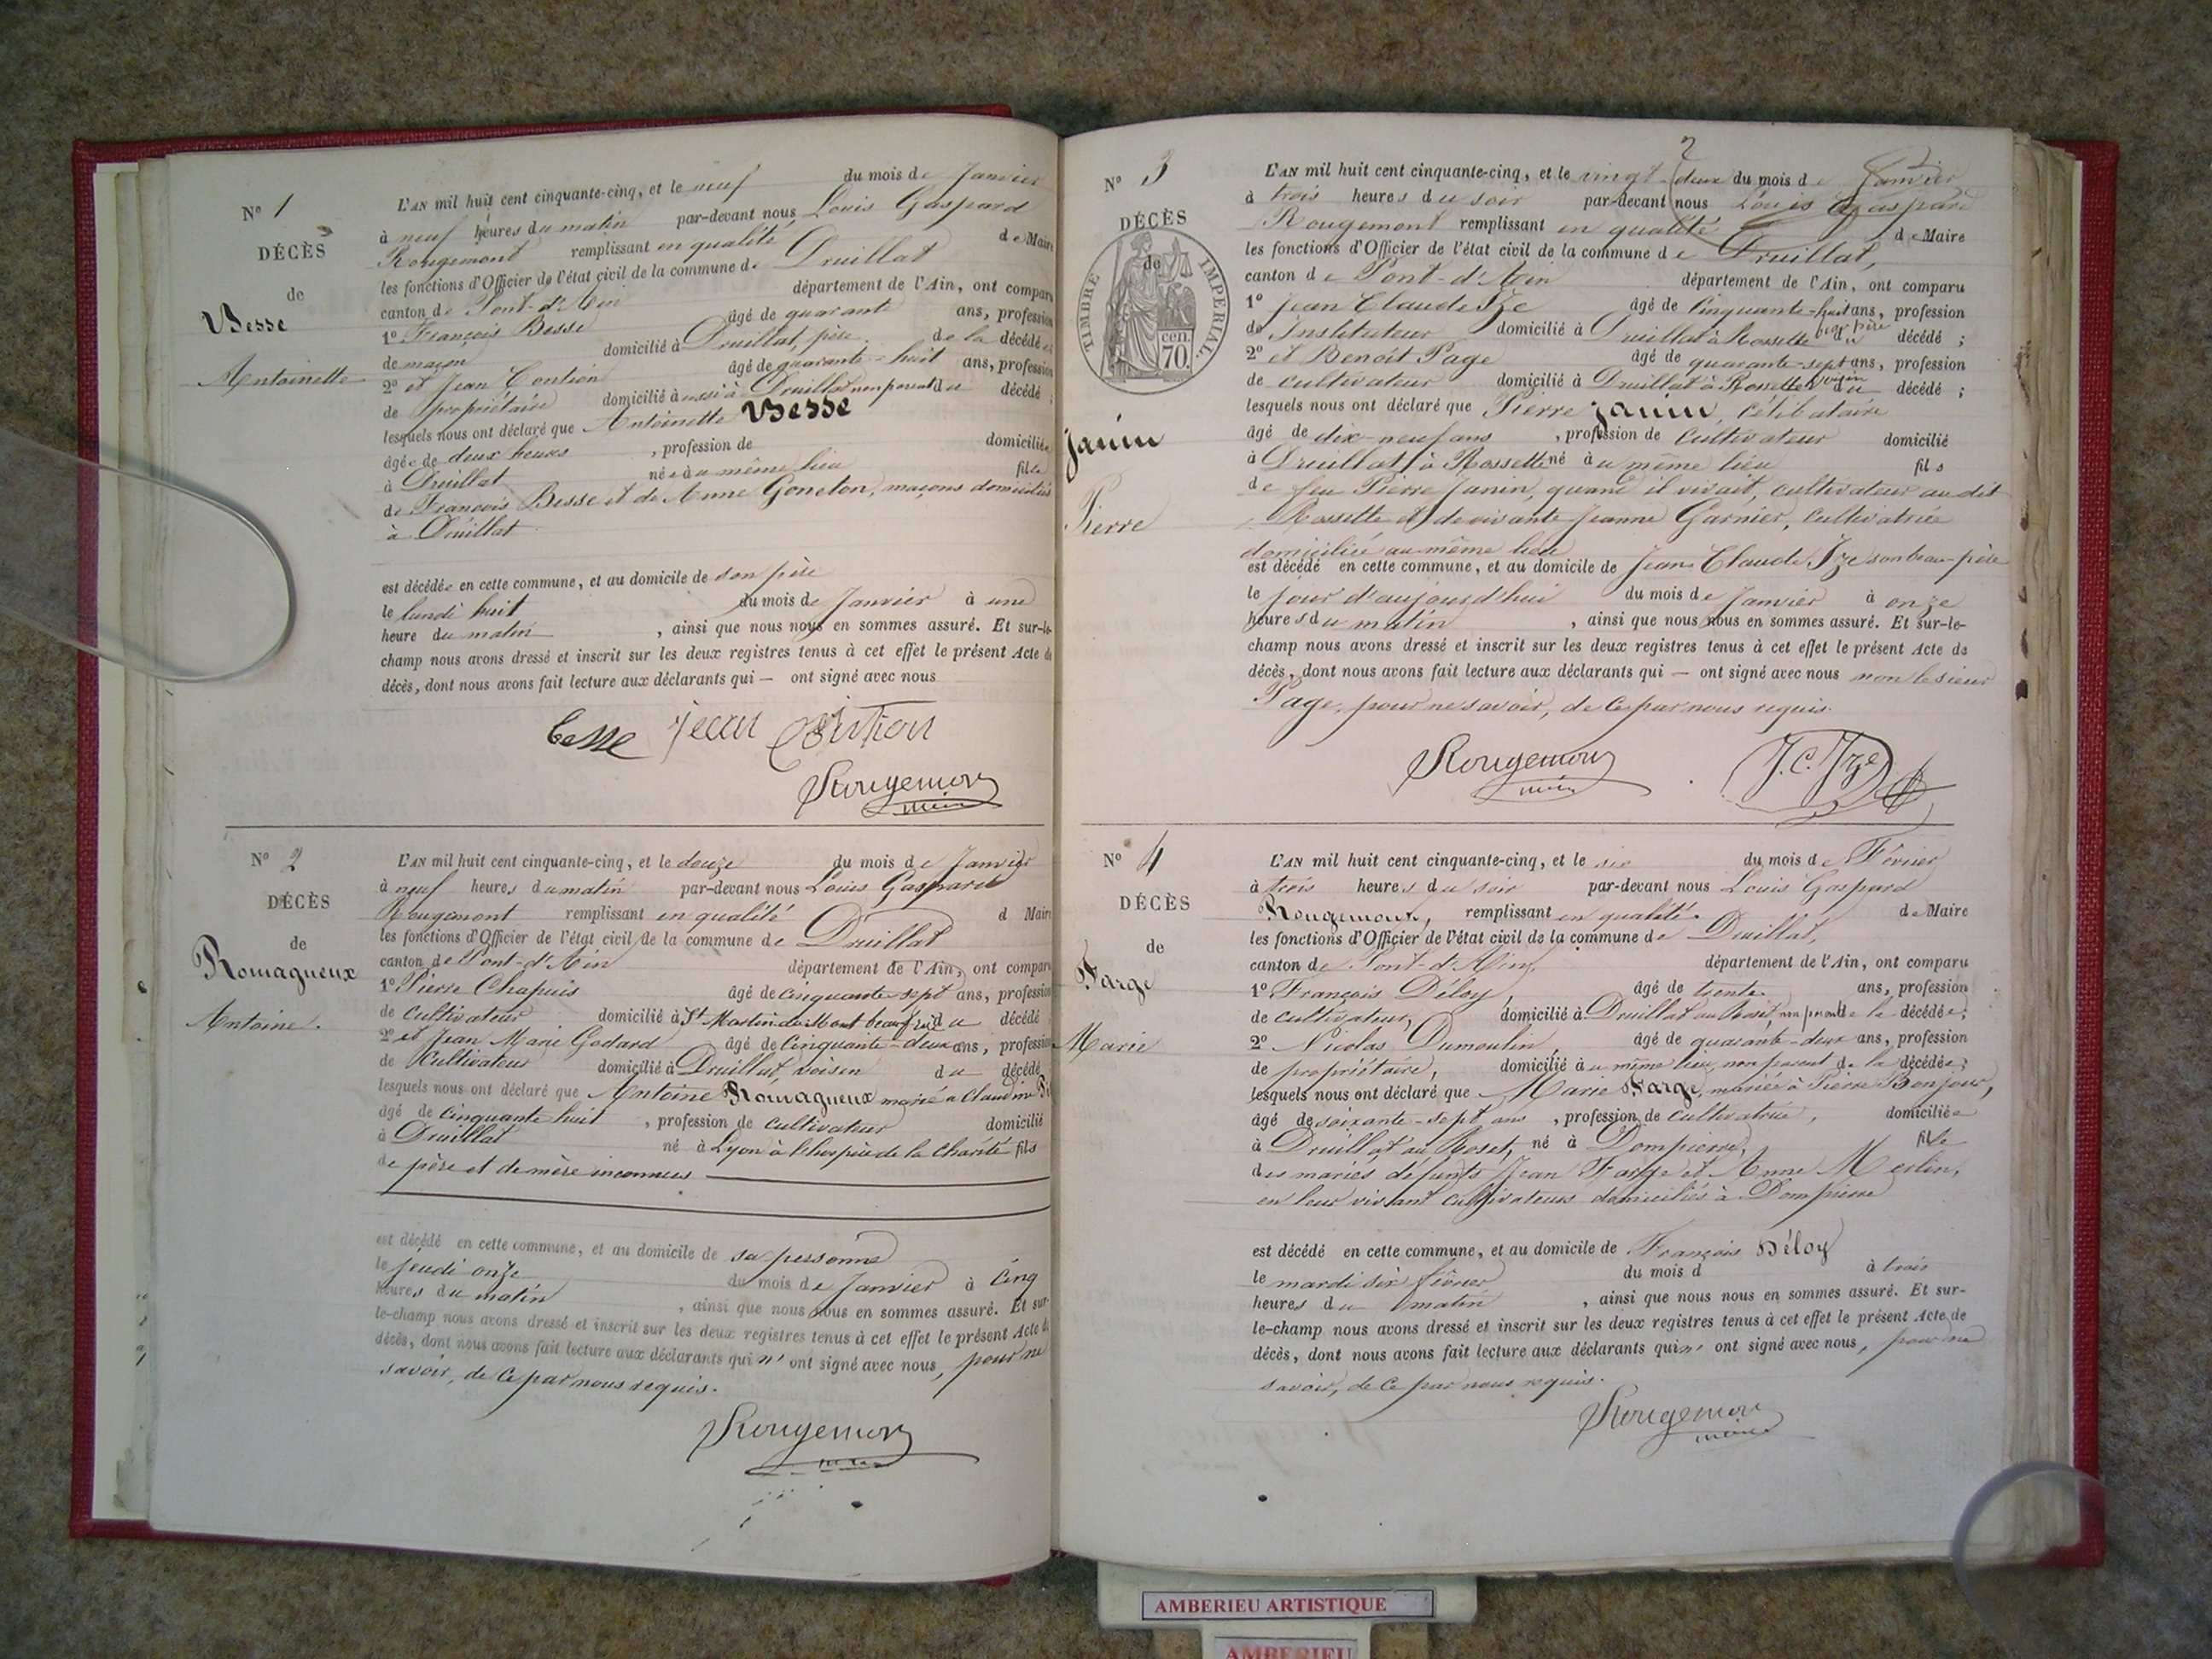 N° 1
DÉCÈS
de
Besse
Antoinette
L'AN mil huit cent cinquante-cinq, et le neuf du mois de Janvier
à neuf heures du matin par-devant nous Louis Gaspard
Rougemont remplissant en qualité de Maire
les fonctions d'Officier de l'état civil de la commune de Druillat
canton de Pont-d'Ain département de l'Ain, ont comparu
1° François Besse âgé de quarante ans, profession
de maçon domicilié à Druillat, père de la décédée
2° et Jean Contion âgé de quarante-huit ans, profession
de propriétaire domicilié aussi à Druillat non parent du décédé ;
lesquels nous ont déclaré que Antoinette Besse
âgée de deux heures , profession de domiciliée
à Druillat née à u même lieu fille
de François Besse et de Anne Goneton, maçons domiciliés
à Druillat
est décédée en cette commune, et au domicile de son père
le lundi huit du mois de Janvier à une
heure du matin , ainsi que nous nous en sommes assuré. Et sur-le-
champ nous avons dressé et inscrit sur les deux registres tenus à cet effet le présent Acte de
décès, dont nous avons fait lecture aux déclarants qui — ont signé avec nous
besse jean Contion
Rougemont
maire
N° 2
DÉCÈS
de
Romagneux
Antoine.
L'AN mil huit cent cinquante-cinq, et le douze du mois de Janvier
à neuf heures du matin par-devant nous Louis Gaspard
Rougemont remplissant en qualité d Maire
les fonctions d'Officier de l'état civil de la commune de Druillat
canton de Pont-d'Ain département de l'Ain, ont comparu
1° Pierre Chapuis âgé de cinquante-sept ans, profession
de cultivateur domicilié à St Martin du Mont beau frère du décédé
2° et Jean Marie Godard âgé de cinquante-deux ans, profession
de Cultivateur domicilié à Druillat, voisin du décédé
lesquels nous ont déclaré que Antoine Romagneux marié à Claudine
âgé de cinquante huit , profession de cultivateur domicilié
à Druillat né à Lyon à l'hospice de la Charité fils
de père et de mère inconnus
est décédé en cette commune, et au domicile de sa personne
le jeudi onze du mois de Janvier à cinq
heures du matin , ainsi que nous nous en sommes assuré. Et sur-
le-champ nous avons dressé et inscrit sur les deux registres tenus à cet effet le présent Acte de
décès, dont nous avons fait lecture aux déclarants qui n' ont signé avec nous, pour ne
savoir, de ce par nous requis.
Rougemont
maire
2
N° 3
DÉCÈS
de
TIMBRE IMPÉRIAL.
cen.
70.
Janin
Pierre
L'AN mil huit cent cinquante-cinq, et le vingt-deux du mois de Janvier
à trois heures du soir par-devant nous Louis Gaspard
Rougemont remplissant en qualité de Maire
les fonctions d'Officier de l'état civil de la commune de Druillat,
canton de Pont-d'Ain département de l'Ain, ont comparu
1° Jean Claude Ize âgé de cinquante-huit ans, profession
de Instituteur domicilié à Druillat à Rossette beau père du décédé ;
2° et Benoit Page âgé de quarante-sept ans, profession
de cultivateur domicilié à Druillat à Rossette voisin du décédé ;
lesquels nous ont déclaré que Pierre Janin, célibataire
âgé de dix-neuf ans , profession de Cultivateur domicilié
à Druillat à Rossette né à u même lieu fils
de feu Pierre Janin, quand il vivait, cultivateur au dit
Rossette et de vivante Jeanne Garnier, cultivatrice
domiciliée au même lieu
est décédé en cette commune, et au domicile de Jean Claude Ize son beau-père
le jour d'aujourd'hui du mois de Janvier à onze
heures du matin , ainsi que nous nous en sommes assuré. Et sur-le-
champ nous avons dressé et inscrit sur les deux registres tenus à cet effet le présent Acte de
décès, dont nous avons fait lecture aux déclarants qui — ont signé avec nous non le sieur
Page, pour ne savoir, de ce par nous requis.
Rougemont J. C. Ize
maire
N° 4
DÉCÈS
de
Farge
Marie
L'AN mil huit cent cinquante-cinq, et le six du mois de Février
à trois heures du soir par-devant nous Louis Gaspard
Rougemont, remplissant en qualité. de Maire
les fonctions d'Officier de l'état civil de la commune de Druillat,
canton de Pont-d'Ain, département de l'Ain, ont comparu
1° François Déloy, âgé de trente. ans, profession
de cultivateur, domicilié à Druillat au Roset, non parent de la décédée ;
2° Nicolas Dumoulin, âgé de quarante-deux ans, profession
de propriétaire, domicilié à u même lieu, non parent de la décédée ;
lesquels nous ont déclaré que Marie Farge, mariée à Pierre Bonjour,
âgé de soixante-sept ans , profession de cultivatrice, domiciliée
à Druillat au Roset, né à Dompierre, fille
des mariés défunts Jean Farge et Anne Merlin,
en leur vivant cultivateurs domiciliés à Dompierre
est décédé en cette commune, et au domicile de François Déloy
le mardi six février du mois d à trois
heures du matin , ainsi que nous nous en sommes assuré. Et sur-
le-champ nous avons dressé et inscrit sur les deux registres tenus à cet effet le présent Acte de
décès, dont nous avons fait lecture aux déclarants qui n' ont signé avec nous, pour ne
savoir, de ce par nous requis.
Rougemont
maire
AMBERIEU ARTISTIQUE
AMBERIEU